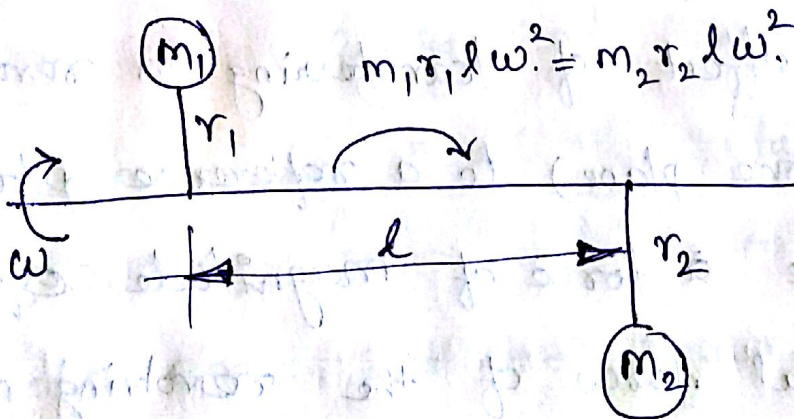 m₁
m₁r₁lω² = m₂r₂lω²
r₁
ω
l
r₂
m₂